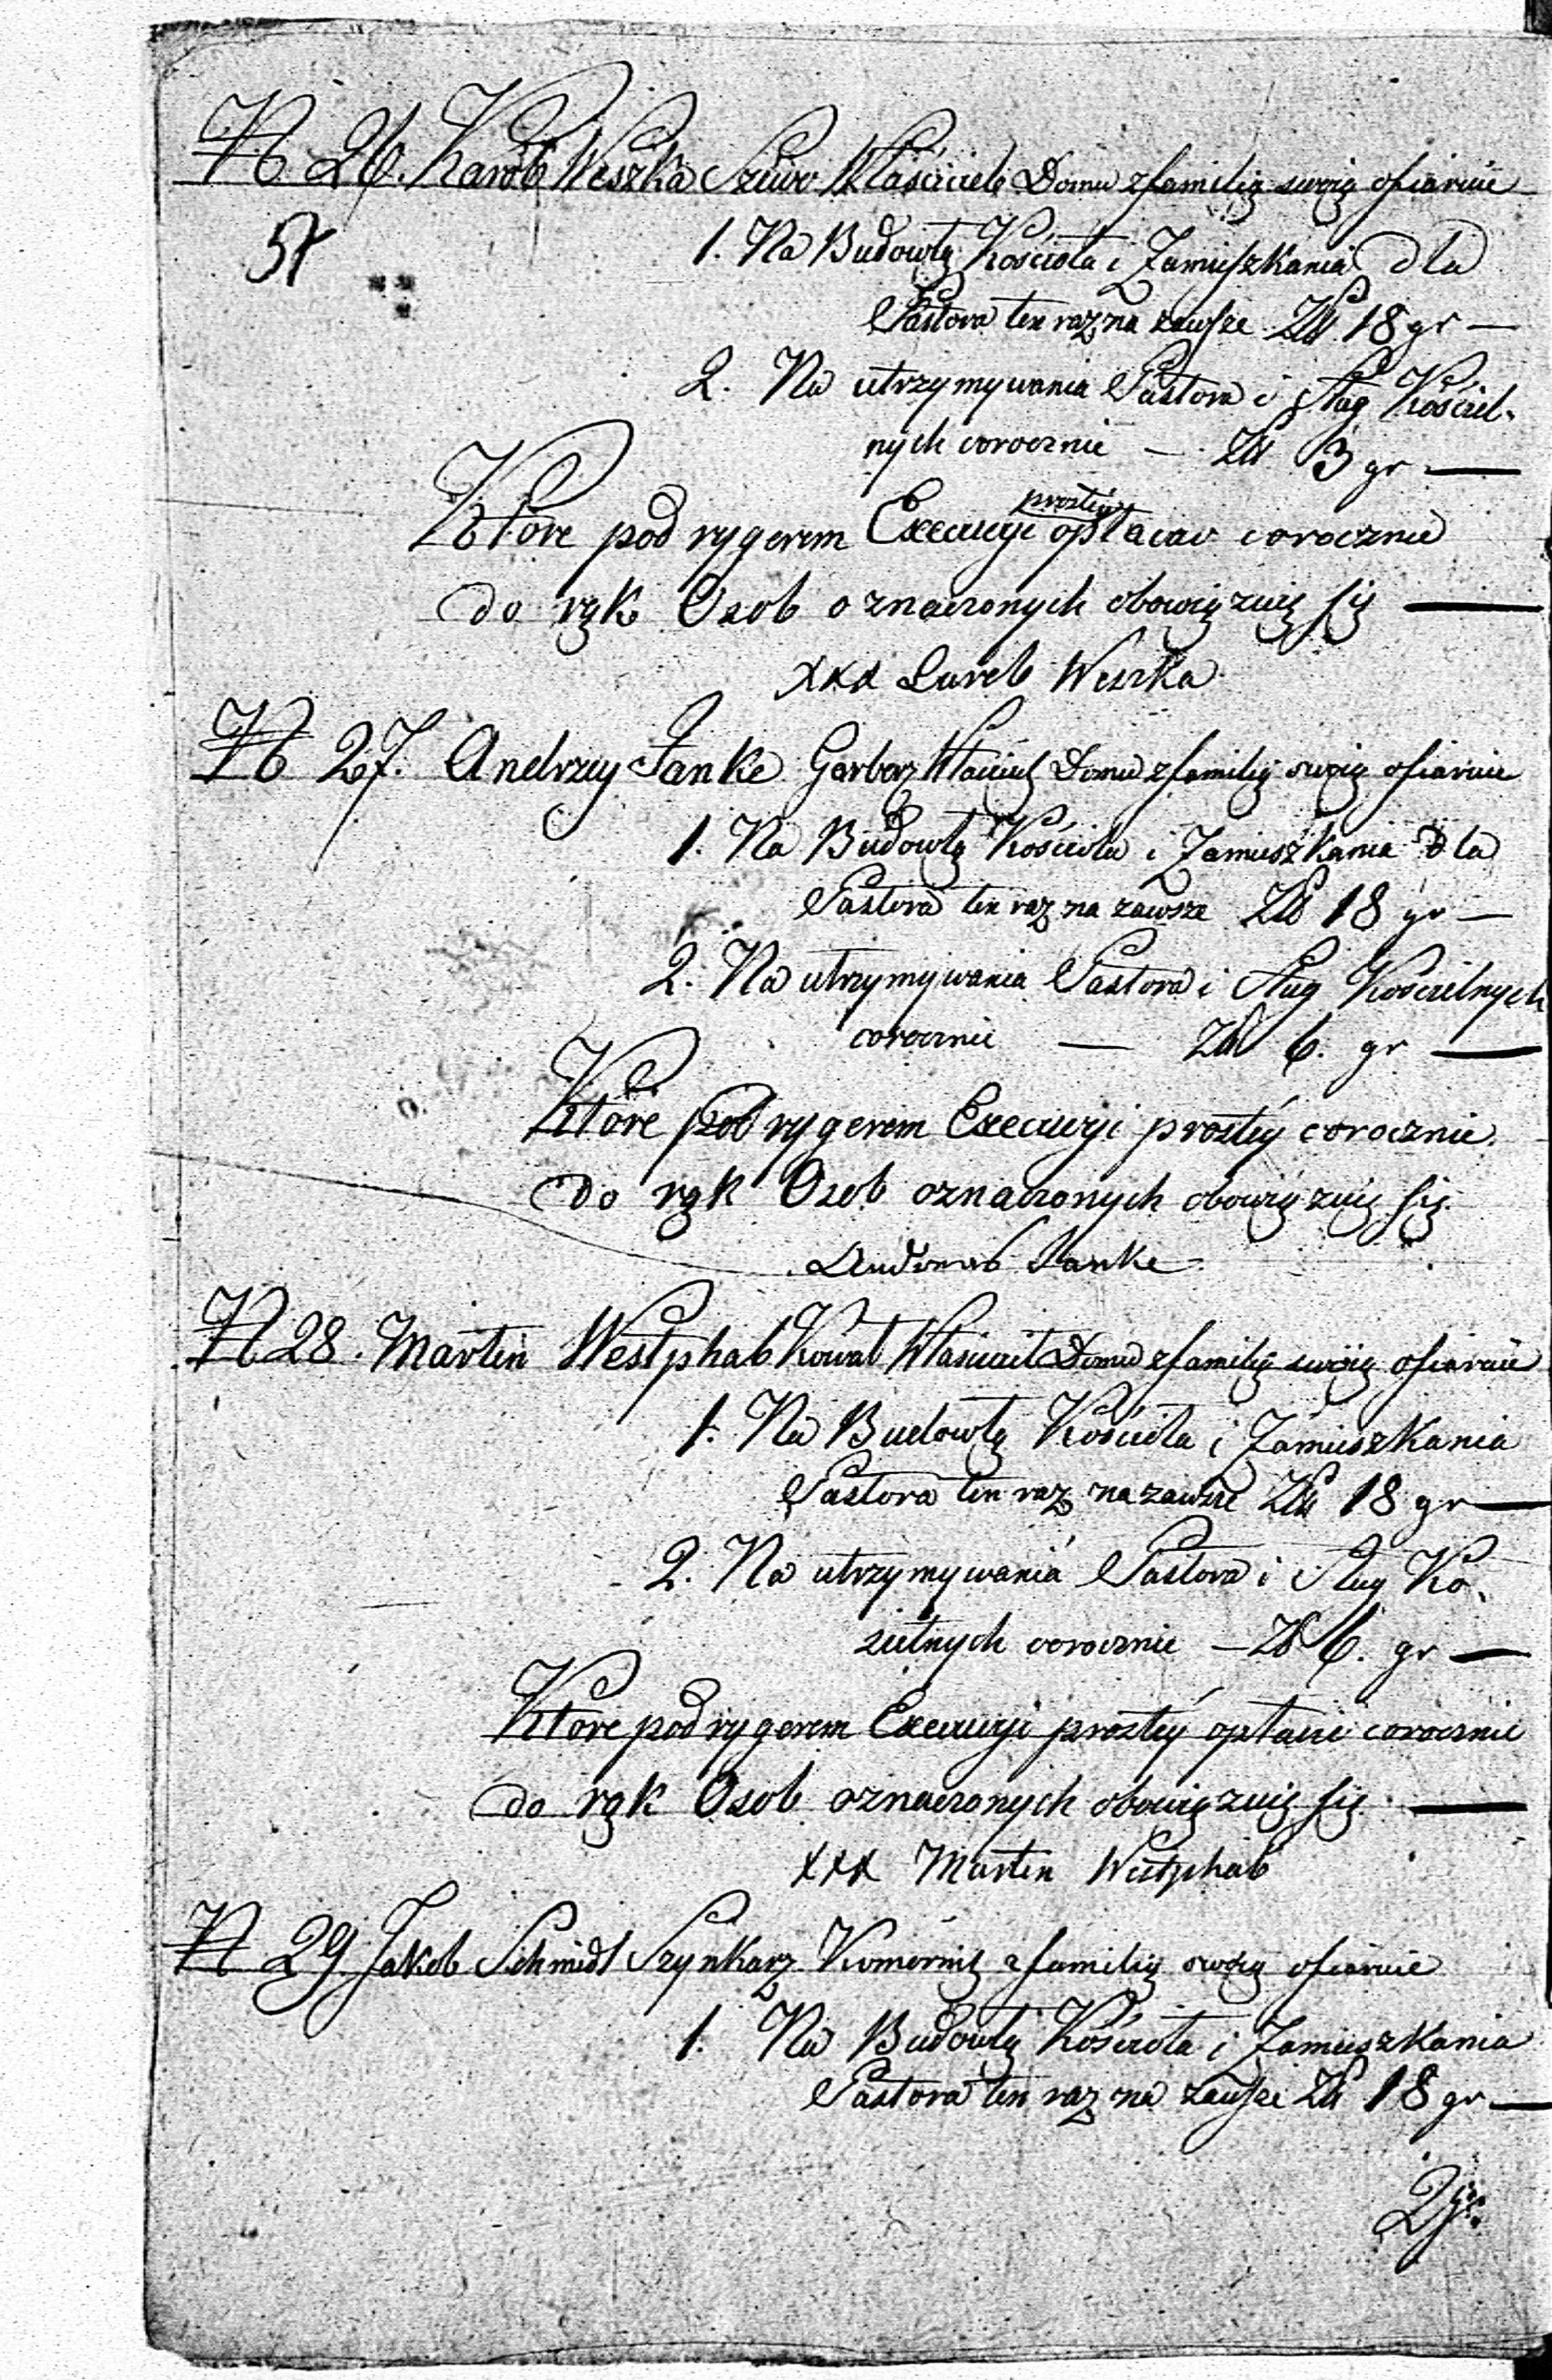 N 26. Karol Weszka Szewc Właściciel Domu z familią swoią ofiaruie
1. Na Budowlą Kościoła i Zamiészkania dla
Pastora ten raz na zawsze Zł 18 gr —
2. Na utrzymywania Pastora i Sług Kościel-
nych corocznie — Zł 3 gr —
prostéy
Które pod rygerem Execucyi opłacac corocznie
do rąk Osob oznaczonych obowięzuię się —
xxx Karol Weszka
N 27. Andrzey Janke Garbarz Właściciel Domu z familią swoią ofiaruie
1. Na Budowlą Kościoła i Zamieszkania dla
Pastora ten raz na zawsze Zł 18 gr —
2. Na utrzymywania Pastora i Sług Kościelnych
corocznie — Zł 6. gr —
Które pod rygerem Execucyi prostéy corocznie
do rąk Osob oznaczonych obowięzuię się.
Janke
N 28. Martin Westphal Kowal Właściciel Domu z familią swoią ofiaruie
1. Na Budowlą Kościoła i Zamieszkania
Pastora ten raz na zawsze Zł 18 gr —
2. Na utrzymywania Pastora i Sług Ko-
scielnych corocznie — Zł 6. gr —
Które pod rygerem Execucyi prostéy opłacic corocznie
do rąk Osob oznaczonych obowięzuię się —
xxx Martin Westphal
N 29 Jakob Schmidt Szynkarz Komornik z familią swoią ofiaruie
1. Na Budowlą Kościoła i Zamieszkania
Pastora ten raz na zawsze Zł 18 gr —